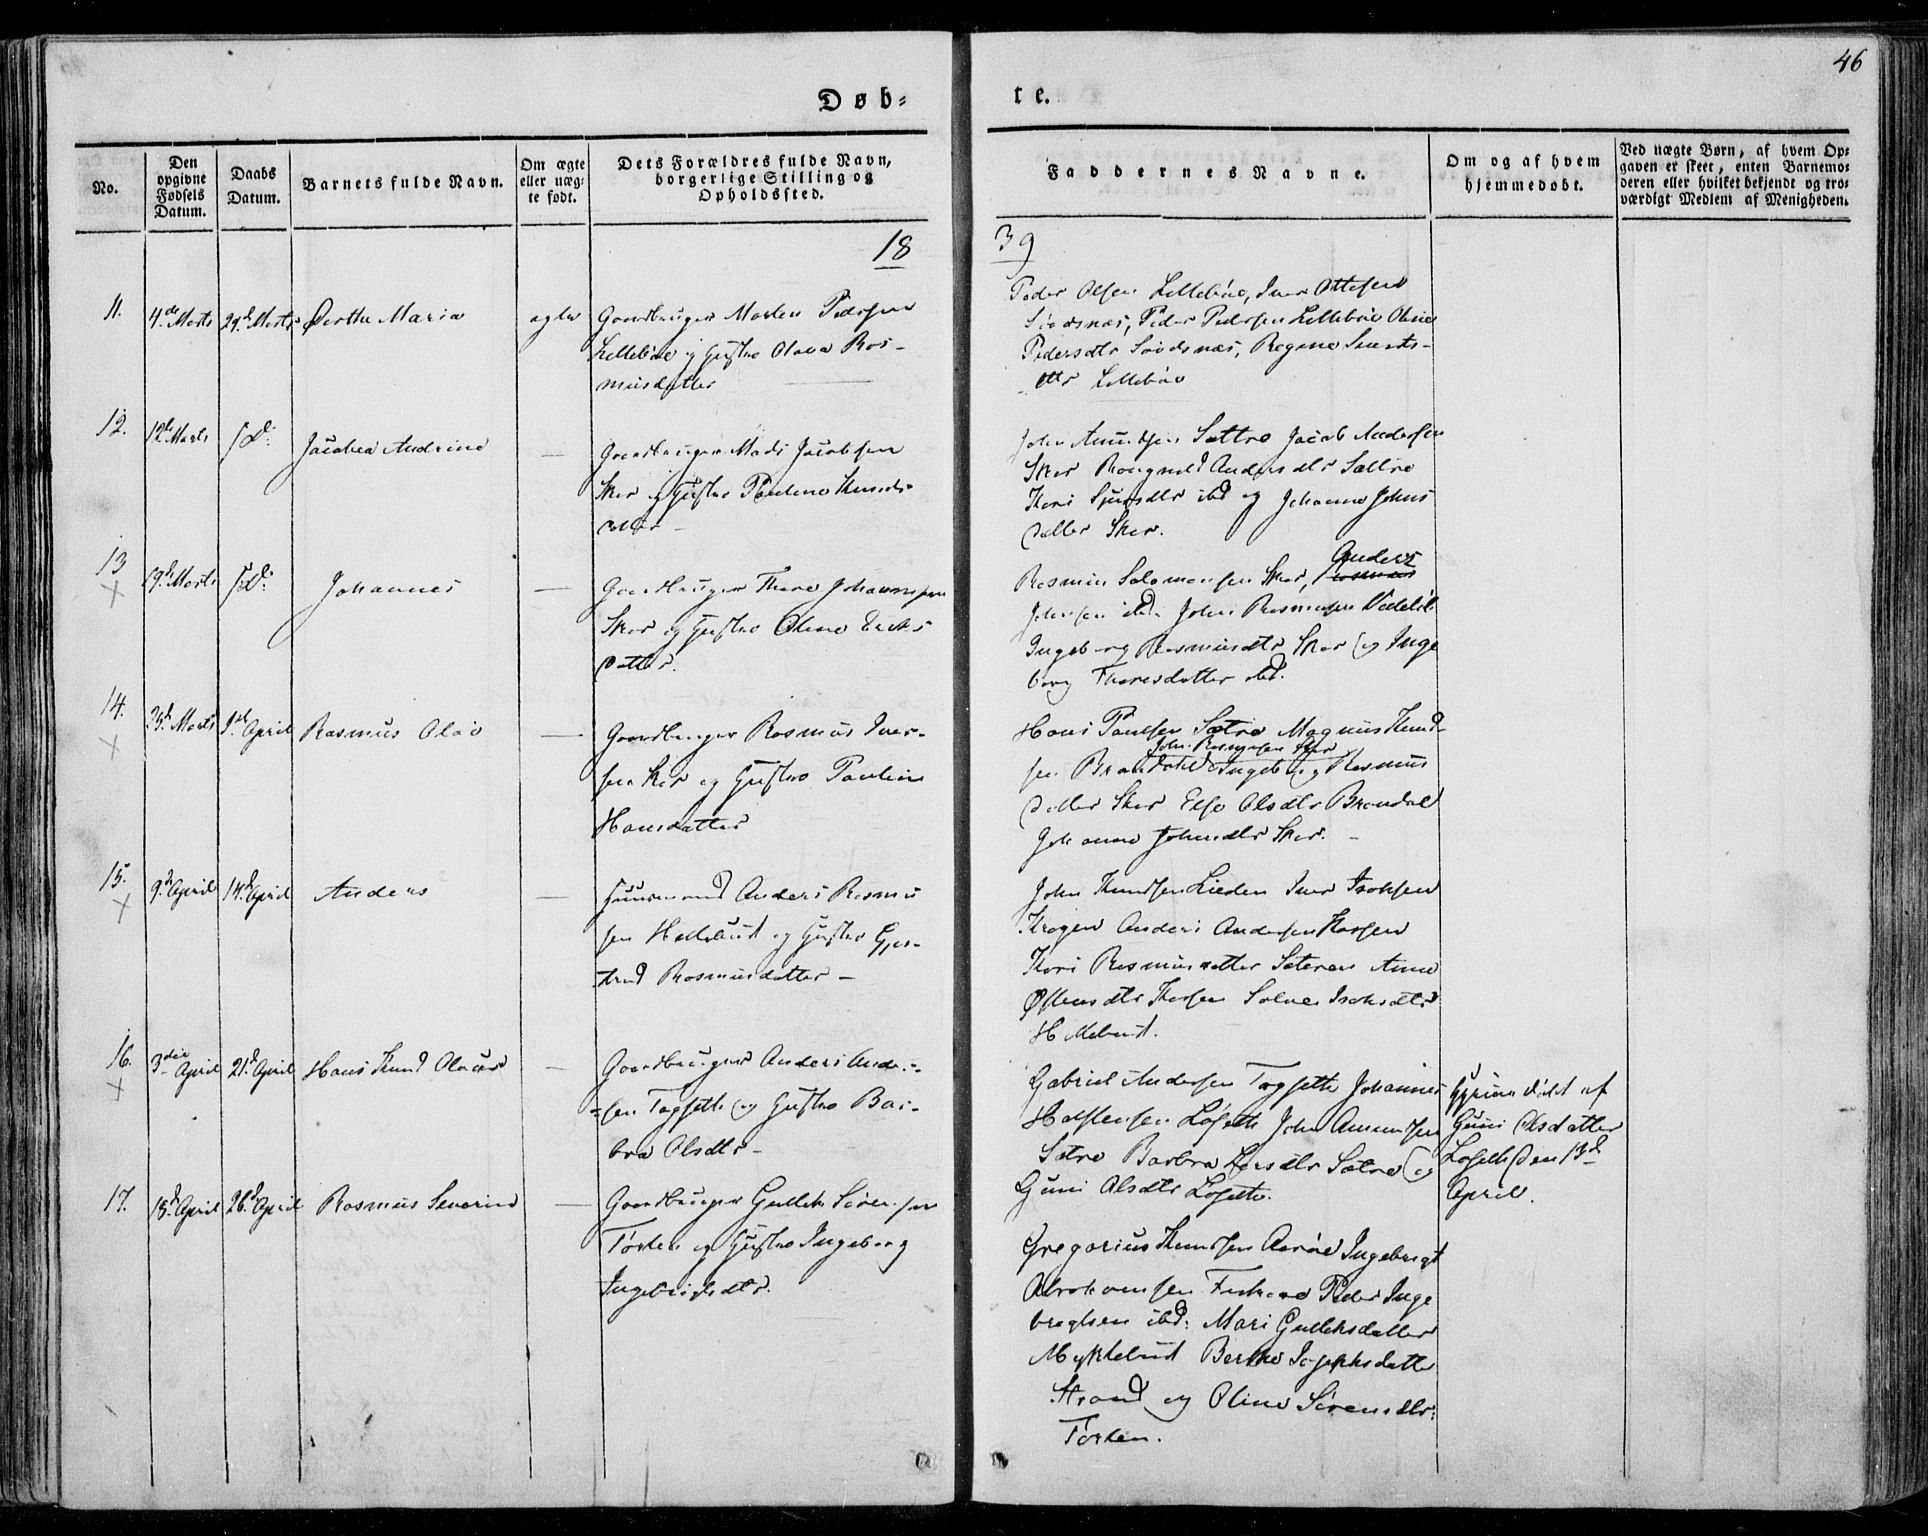 46
Døb-
te.
No.
Den opgivne Fødsels Datum.
Daabs Datum.
Barnets fulde Navn.
Om ægte eller uæg-te født.
Dets Forældres fulde Navn, borgerlige Stilling og Opholdssted.
Faddernes Navne.
Om og af hvem hjemmedøbt.
Ved uægte Børn, af hvem Op-gaven er skeet, enten Barnemo-deren eller hvilket bekjendt og tro-værdigt Medlem af Menigheden.
18
39
11. 4de Marts 29d Marts Berthe Maria ægte
Gaardbruger Morten Pedersen
Lillebøe og Hustro Olava Ras-
musdatter
Peder Olsen Lillebøe, Iver Ottesen
Peder Pedersen Lillebøe Oline
Pedersdtr Regine Siverts-
dtr Lillebøe
12. 12te Marts D: Jacobea Andrine —
Gaardbruger Mads Jacobsen
Sker og Hustro Pauline Knuds-
datter
John Amundsen Sætre Jacob Andersen
Sker Andersdtr Sætre
ibd og Johanne Johns
datter Sker.
13 X 19d Marts D: Johannes —
Gaardbruger Thore Johannesen
Sker og Hustro Oline Erichs
datter.
Anders
Rasmus Salomonsen Sker, Rasmus
Johnsen ibd. John Rasmusen
Ingeborg Rasmusdtr Sker og Inge
borg Thoresdatter ibd.
14. X 25d Marts 1ste April Rasmus Olai —
Gaardbruger Rasmus Iver-
sen Sker og Hustro Pauline
Hansdatter
Hans Paulsen Sætre Magnus Knud-
John Rasmusen Sker
sen Brandal Ingeborg Rasmus
datter Sker Else Olsdtr Brandal
Johanne Johnsdtr Sker. —
15. X 9de April 14d April Anders —
Huusmand Anders Rasmu
sen Hellebust og Hustro Gjer-
trud Rasmusdatter —
John Knudsen Lieden Iver
Krogen Anders Andersen
Kari Rasmusdatter Anne
Hellebust.
16. X 3die April 21d April Hans Knud Olaus —
Gaardbruger Anders Ander-
sen og Hustro Bar-
bra Olsdtr —
Gabriel Andersen Johannes
Løseth John Amundsen
Sætre Barbra Larsdtr Sætre og
Guni Olsdtr Løseth.
Hjemmedøbt af
Guni Olsdatter
Løseth den 13d
April.
17. 18d April 26d April Rasmus Severin —
Gaardbruger Gullik Sørensen
og Hustro Ingeborg
Ingebrigtsdtr.
Gregorius Knudsen Aarøe Ingebrigt
Abrahamsen Peder Inge
brigtsen ibd: Mari Gulliksdatter
Myklebust Berthe Josephsdatter
Strand og Oline Sørensdtr: